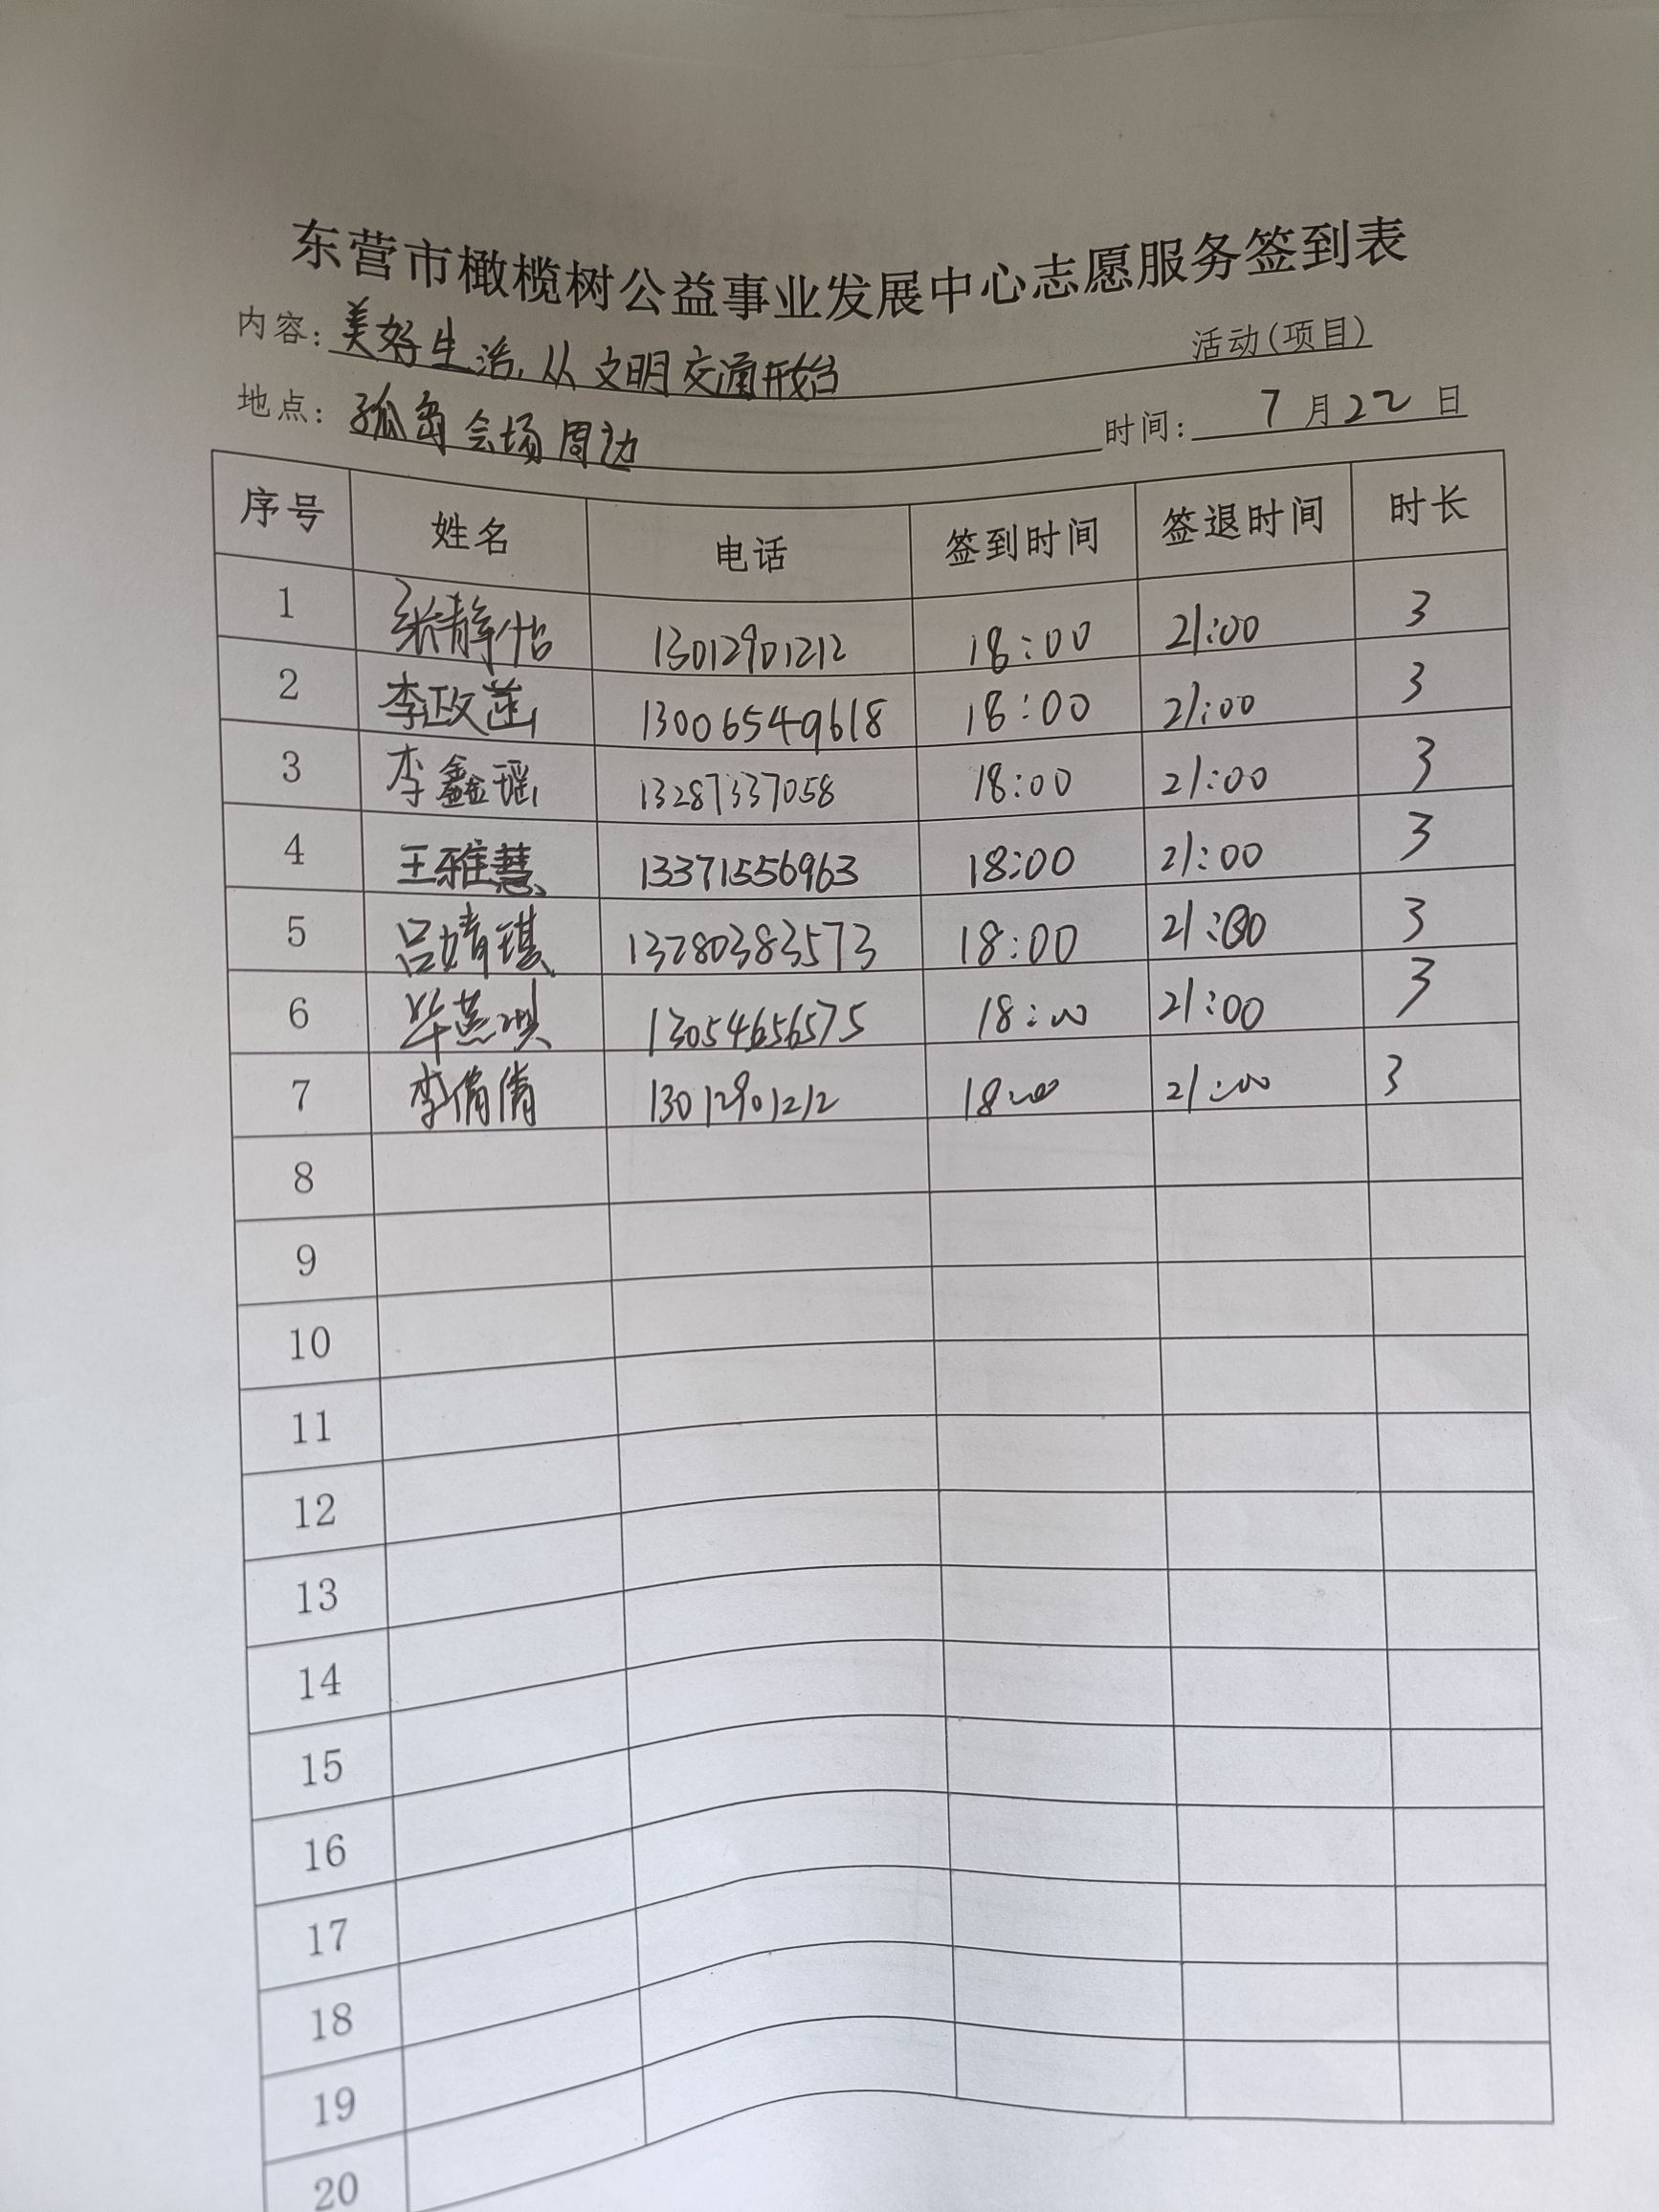 东营市橄榄树公益事业发展中心志愿服务签到表
内容：美好生活，从文明交通开始 活动(项目)
地点：孤岛会场周边 时间：7月22日
序号 姓名 电话 签到时间 签退时间 时长
1 张静怡 13012901212 18:00 21:00 3
2 李政 13006549618 18:00 21:00 3
3 李鑫瑶 13287337058 18:00 21:00 3
4 王雅慧 13371556963 18:00 21:00 3
5 吕婧琪 13780383573 18:00 21:00 3
6 毕燕琪 13054656575 18:00 21:00 3
7 李倩倩 13012901212 18:00 21:00 3
8
9
10
11
12
13
14
15
16
17
18
19
20